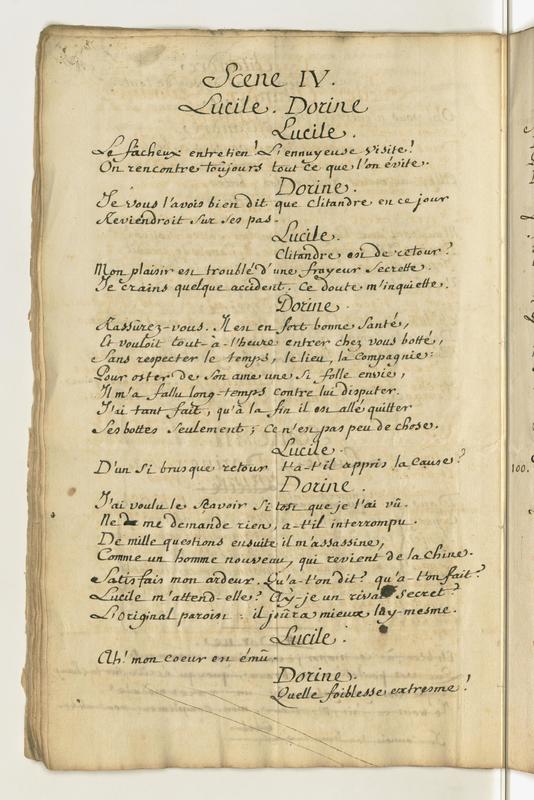 Scene IV.
Lucile. Dorine
Lucile.
Le fâcheux entretien! L'ennuyeuse visite!
On rencontre toujours tout ce que l'on évite.
Dorine.
Je vous l'avois bien dit que Clitandre en ce jour
Reviendroit sur ses pas.
Lucile.
Clitandre est de retour?
Mon plaisir est troublé d'une frayeur secrette.
Je crains quelque accident. Ce doute m'inquiette.
Dorine.
Rassûrez-vous. Il est en fort bonne santé,
Et vouloit tout-à-l'heure entrer chez vous botté,
Sans respecter le temps, le lieu, la Compagnie:
Pour oster de son ame une si folle envie,
Il m'a fallu long-temps contre lui disputer.
J'ai tant fait, qu'à la fin il est allé quitter
Ses bottes seulement; ce n'est pas peu de chose.
Lucile.
D'un si brusque retour t'a-t'il appris la cause?
Dorine.
J'ai voulu le sçavoir si tost que je l'ai vû.
Ne me demande rien, a-t'il interrompu.
De mille questions ensuite il m'assassine,
Comme un homme nouveau, qui revient de la Chine.
Satisfais mon ardeur. Qu'a-t'on dit? qu'a-t'on fait?
Lucile m'attend-elle? Ay-je un rival secret?
L'Original paroist: il joüra mieux luy-mesme.
Lucile.
Ah! mon coeur est émû.
Dorine.
Quelle foiblesse extresme!
100.